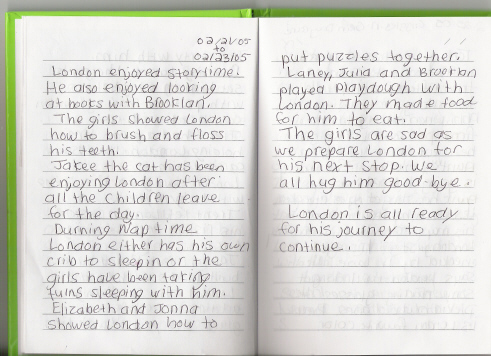 02/21/05
to
02/23/05
London enjoyed storytime.
He also enjoyed looking
at books with Brooklan.
The girls showed London
how to brush and floss
his teeth.
Jakee the cat has been
enjoying London after
all the children leave
for the day.
Durning Nap time
London either has his own
crib to sleepin or the
girls have been taking
turns sleeping with him.
Elizabeth and Jonna
showed London how to
put puzzles together.
Laney, Julia and Brooklan
played playdough with
London. They made food
for him to eat.
The girls are sad as
we prepare London for
his next stop. We
all hug him good-bye.
London is all ready
for his journey to
continue.